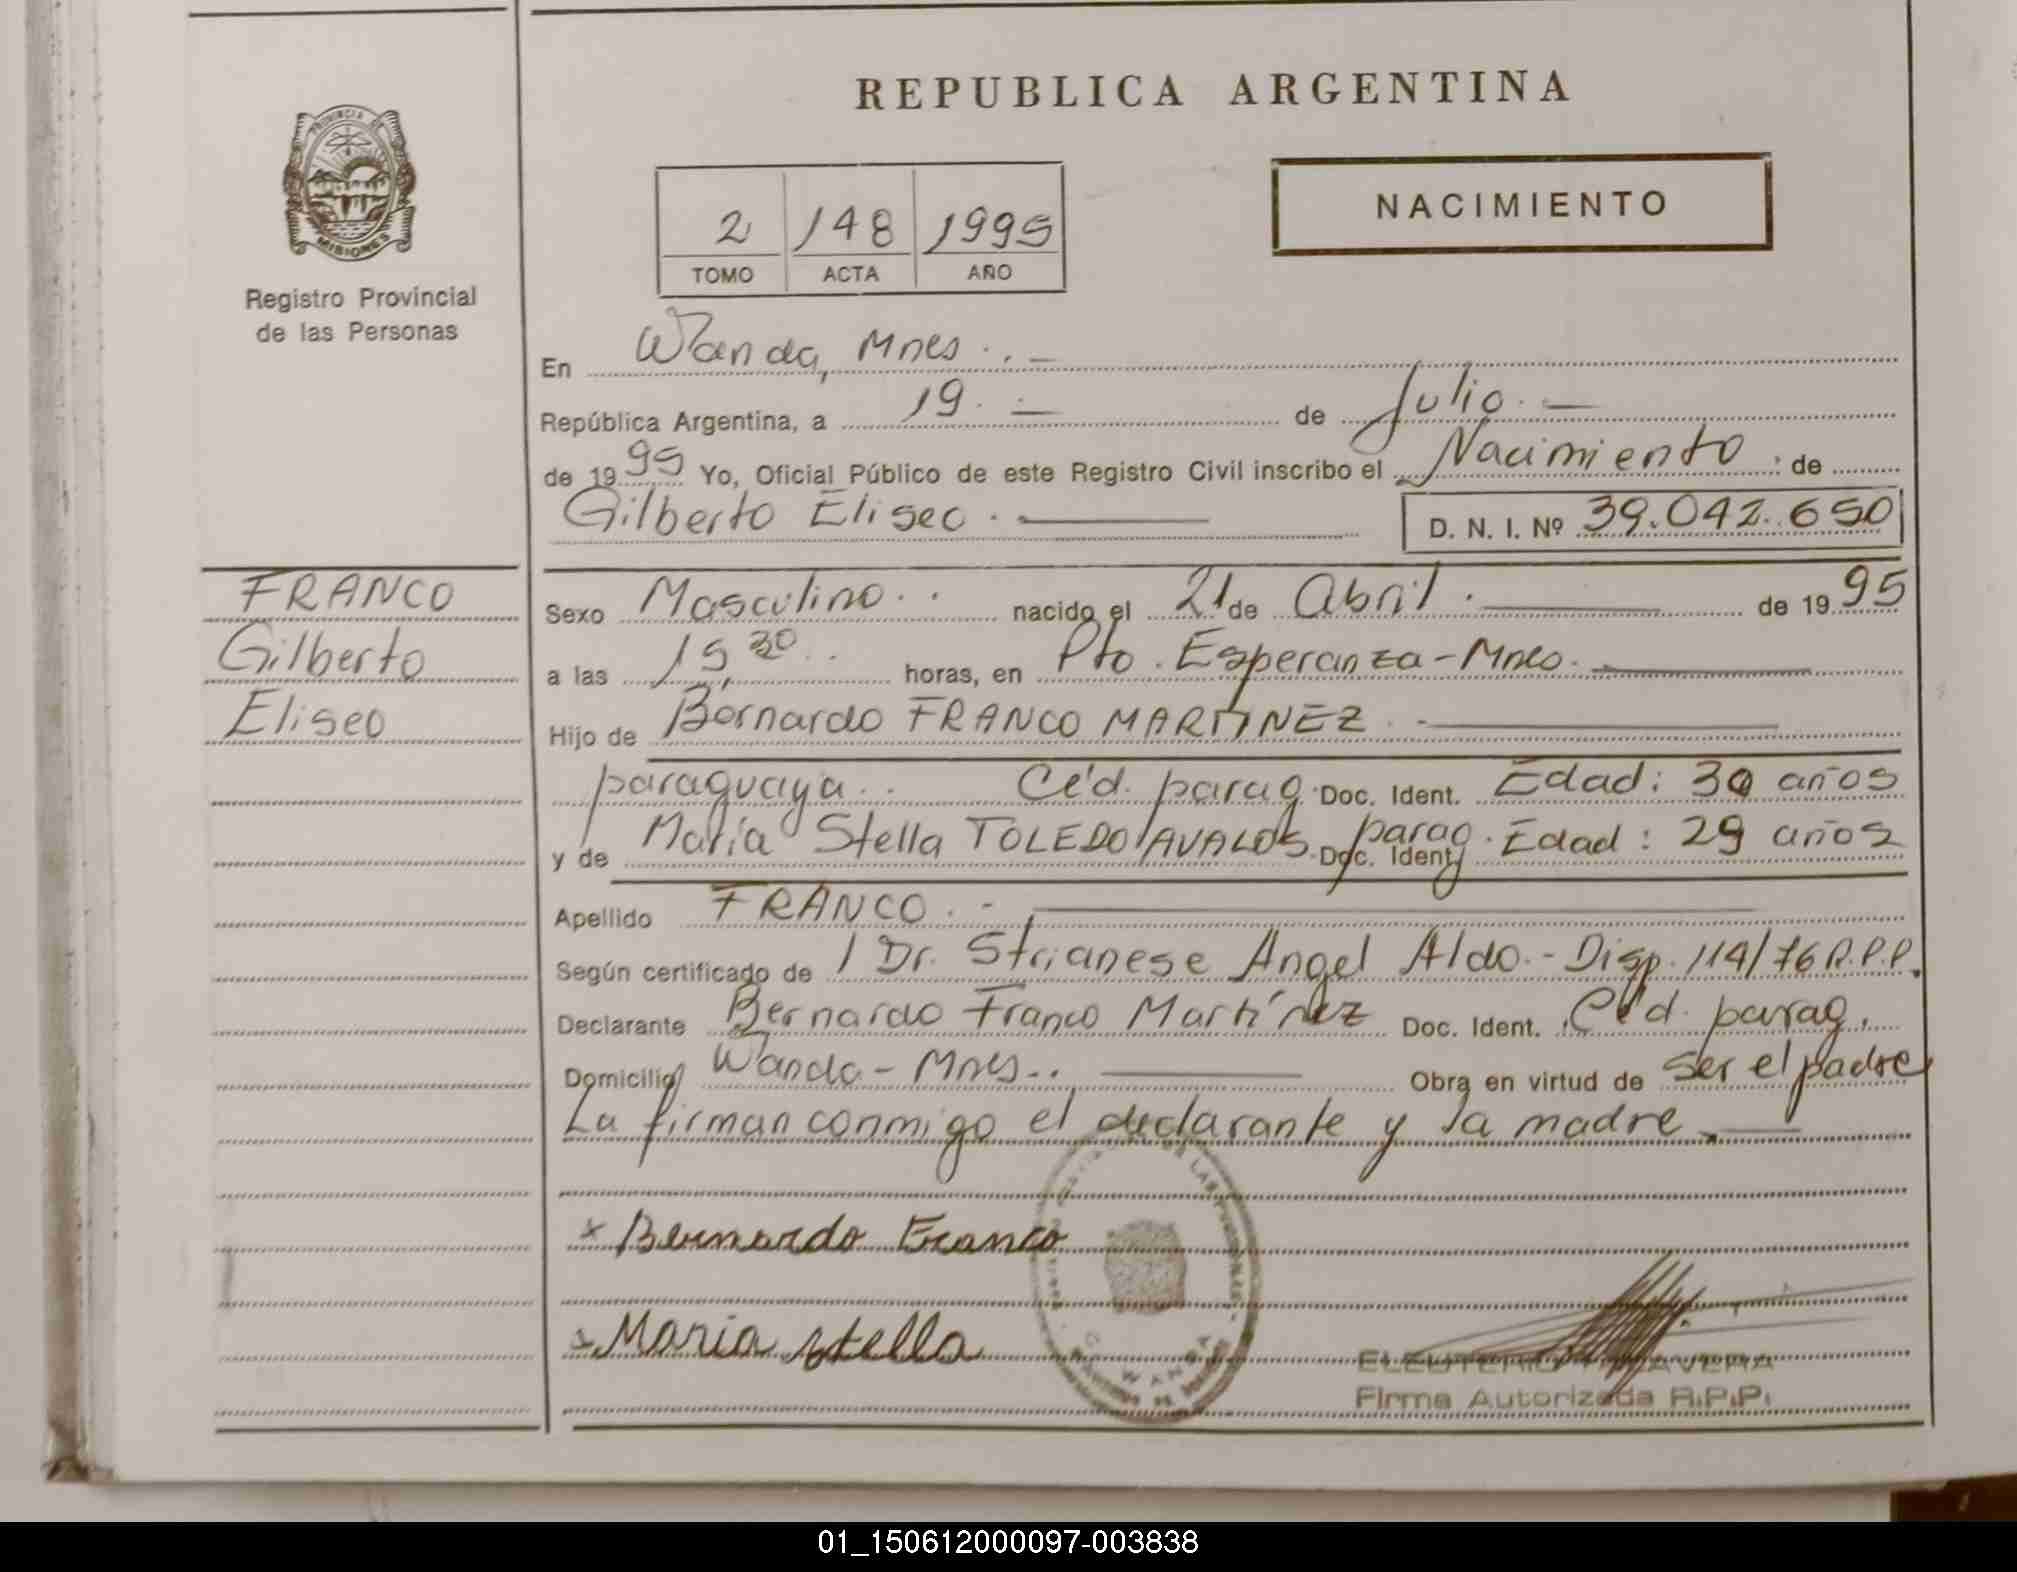 REPUBLICA ARGENTINA
PROVINCIA DE
MISIONES
Registro Provincial
de las Personas
2 148 1995
TOMO ACTA AÑO
NACIMIENTO
En Wanda, Mnes..—
República Argentina, a 19.— de Julio.—
de 1995 Yo, Oficial Público de este Registro Civil inscribo el Nacimiento. de
Gilberto Eliseo.—
D. N. I. Nº 39.042.650
FRANCO
Gilberto
Eliseo
Sexo Masculino.. nacido el 21 de Abril.— de 1995
a las 15,30.. horas, en Pto. Esperanza-Mnes.—
Hijo de Bernardo FRANCO MARTINEZ.—
paraguaya.. Céd. parag. Doc. Ident. Edad: 30 años
y de María Stella TOLEDO AVALOS. Doc. Ident. parag. Edad: 29 años
Apellido FRANCO.-—
Según certificado de / Dr. Strianese Angel Aldo.-Disp. 114/76 R.P.P.
Declarante Bernardo Franco Martínez Doc. Ident. Céd. parag.
Domicilio Wanda-Mnes..— Obra en virtud de ser el padre
La firman conmigo el declarante y la madre.—
x Bernardo Franco
x Maria stella
WANDA
Firma Autorizada R.P.P.
01_150612000097-003838